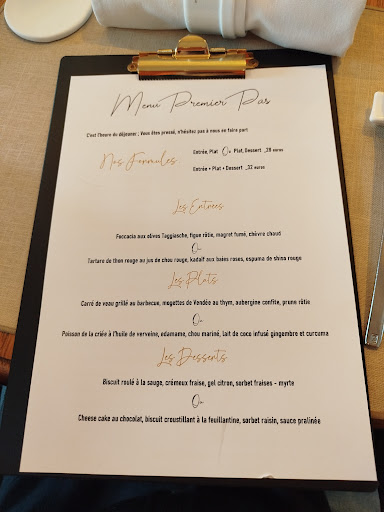 Menu Premier Pas
C'est l'heure du déjeuner ; Vous êtes pressé, n'hésitez pas à nous en faire part
Nos Formules
Entrée, Plat Ou Plat, Dessert _28 euros
Entrée + Plat + Dessert _32 euros
Les Entrées
Foccacia aux olives Taggiasche, figue rôtie, magret fumé, chèvre chaud
Ou
Tartare de thon rouge au jus de chou rouge, kadaïf aux baies roses, espuma de shiso rouge
Les Plats
Carré de veau grillé au barbecue, mogettes de Vendée au thym, aubergine confite, prune rôtie
Ou
Poisson de la criée à l'huile de verveine, edamame, chou mariné, lait de coco infusé gingembre et curcuma
Les Desserts
Biscuit roulé à la sauge, crémeux fraise, gel citron, sorbet fraises - myrte
Ou
Cheese cake au chocolat, biscuit croustillant à la feuillantine, sorbet raisin, sauce pralinée